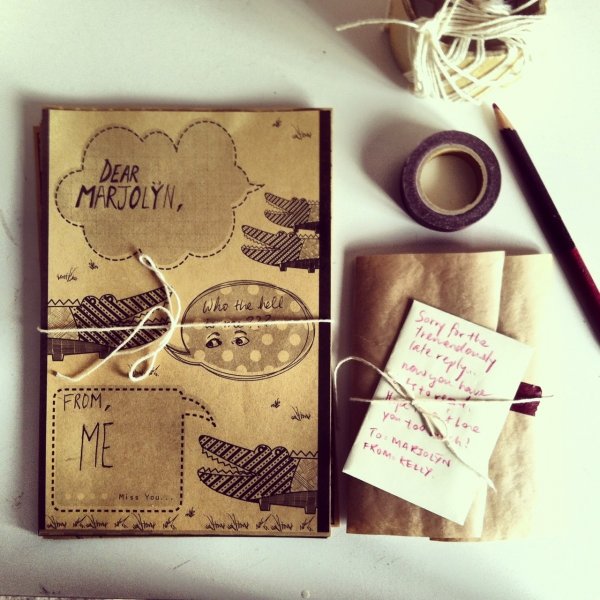 DEAR
MARJOLŸN,
Who the hell
FROM,
ME
Miss You...
Sorry for the
tremendously
late reply..
now you have
you too
TO: MARJOLŸN
FROM: KELLY